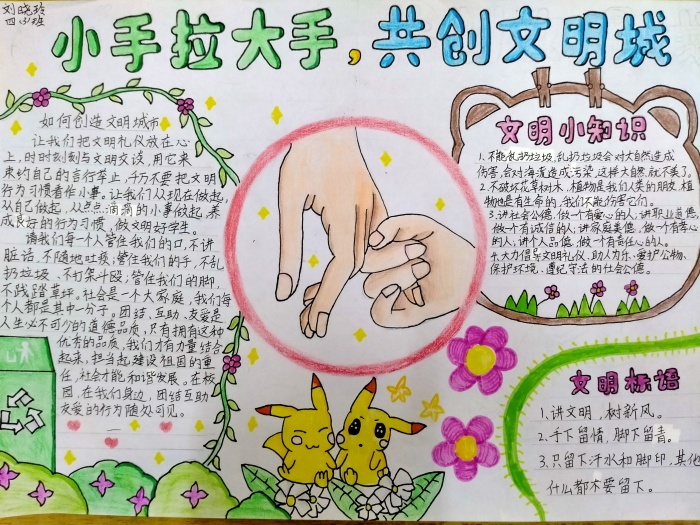 刘晓玲
四(3)班
小手拉大手，共创文明城
如何创造文明城市
让我们把文明礼仪放在心
上，时时刻刻与文明交谈，用它来
来约自己的言行举止，千万不要把文明
行为习惯看作小事。让我们从现在做起，
从自己做起，从点点滴滴的小事做起，养
成良好的行为习惯，做文明好学生。
请我们每一个人管住我们的口，不讲
脏话，不随地吐痰；管住我们的手，不乱
扔垃圾、不打架斗殴；管住我们的脚，
不践踏草坪。社会是一个大家庭，我们每
个人都是其中一分子。团结、互助、友爱是
人生必不可少的道德品质，只有拥有这种
优秀的品质，我们才有力量结合
起来，担当起建设祖国的重
任，社会才能和谐发展。在校
园，在我们身边，团结互助
友爱的行为随处可见。
文明小知识
1.不能乱扔垃圾，乱扔垃圾会对大自然造成
伤害，会对海洋造成污染，这样大自然就不美了。
2.不破坏花草树木，植物是我们人类的朋友，植
物也是有生命的，我们不能伤害它们。
3.讲社会公德，做一个有爱心的人；讲职业道德，
做一个有诚信的人；讲家庭美德，做一个有孝心
的人；讲个人品德，做一个有责任心的人。
4.大力倡导文明礼仪，助人为乐、爱护公物、
保护环境、遵纪守法的社会公德。
文明标语
1.讲文明，树新风。
2.手下留情，脚下留青。
3.只留下汗水和脚印，其他
什么都不要留下。